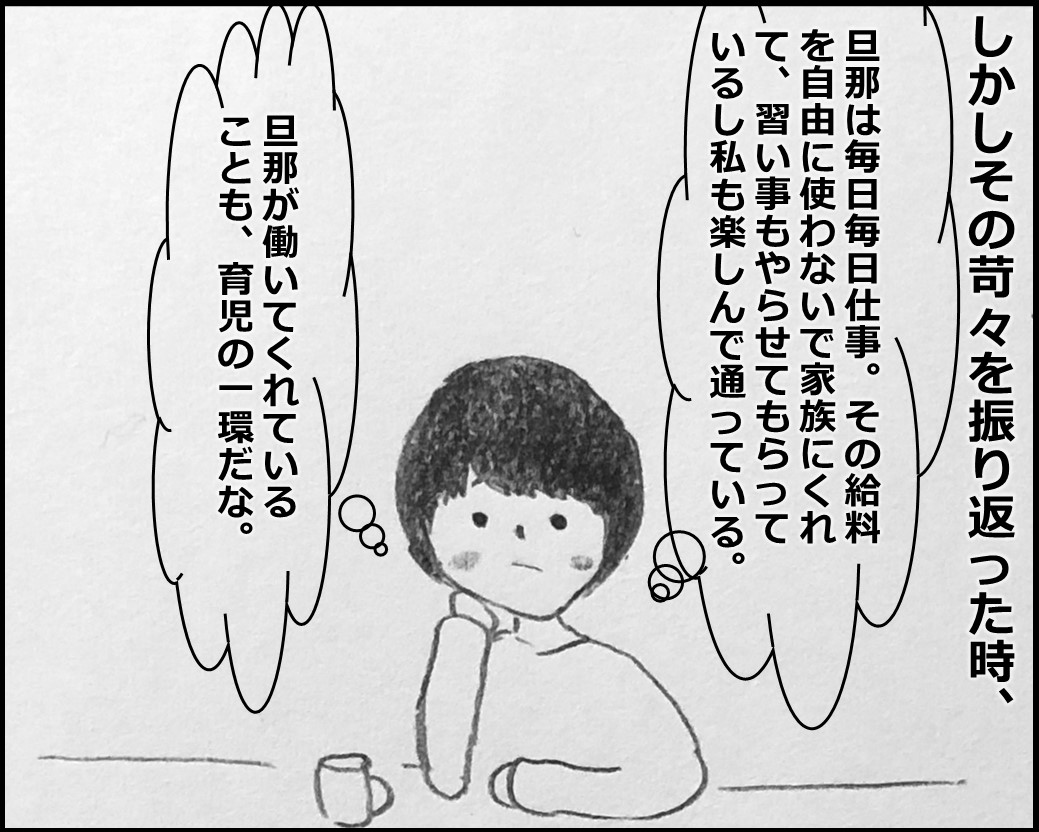 しかしその苛々を振り返った時、
旦那は毎日毎日仕事。その給料
を自由に使わないで家族にくれ
て、習い事もやらせてもらって
いるし私も楽しんで通っている。
旦那が働いてくれている
ことも、育児の一環だな。